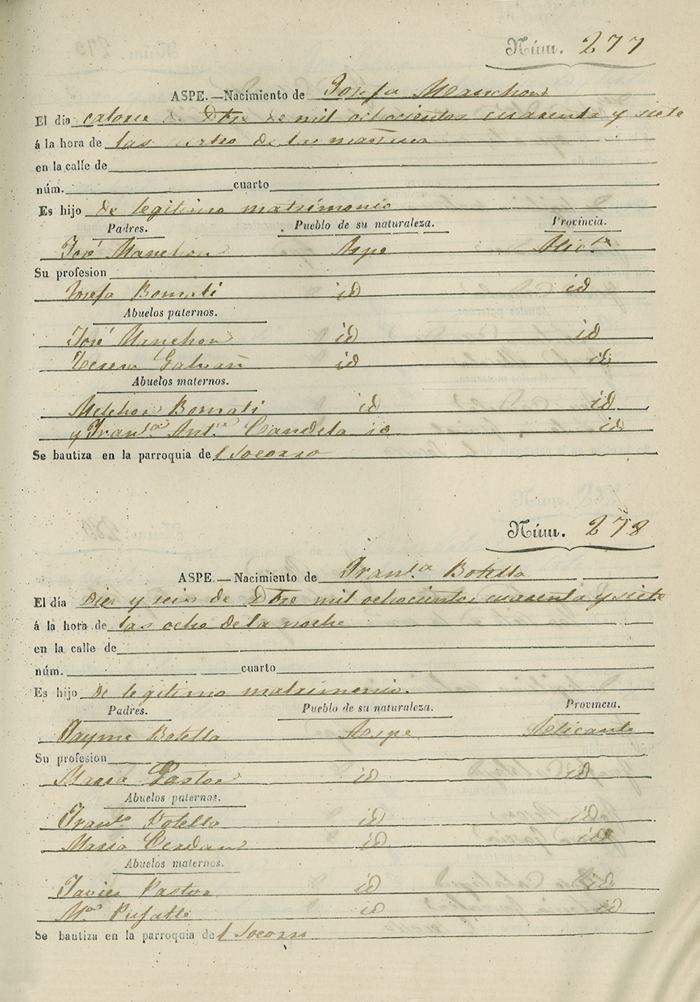 Núm. 277
ASPE.—Nacimiento de Josefa Manchon
El dia catorce de Dbre de mil ochocientos cuarenta y siete
á la hora de las de la mañana
en la calle de
núm. cuarto
Es hijo de legitimo matrimonio
Padres. Pueblo de su naturaleza. Provincia.
José Manchon Aspe Alicte
Su profesion
Josefa Bornati id id
Abuelos paternos.
José Manchon id id
Teresa Galvañ id id
Abuelos maternos.
Melchor Bornati id id
y Franca Anta Candela id id
Se bautiza en la parroquia del Socorro
Núm. 278
ASPE.—Nacimiento de Franca Botella
El día Diez y seis de Dbre mil ochocientos cuarenta y siete
á la hora de las ocho de la noche
en la calle de
núm. cuarto
Es hijo de legitimo matrimonio.
Padres. Pueblo de su naturaleza. Provincia.
Jayme Botella Aspe Alicante
Su profesion
Maria Pastor id id
Abuelos paternos.
Franco Botella id id
Maria Cerdan id id
Abuelos maternos.
Javier Pastor id id
Ma Pujalte id id
Se bautiza en la parroquia del Socorro